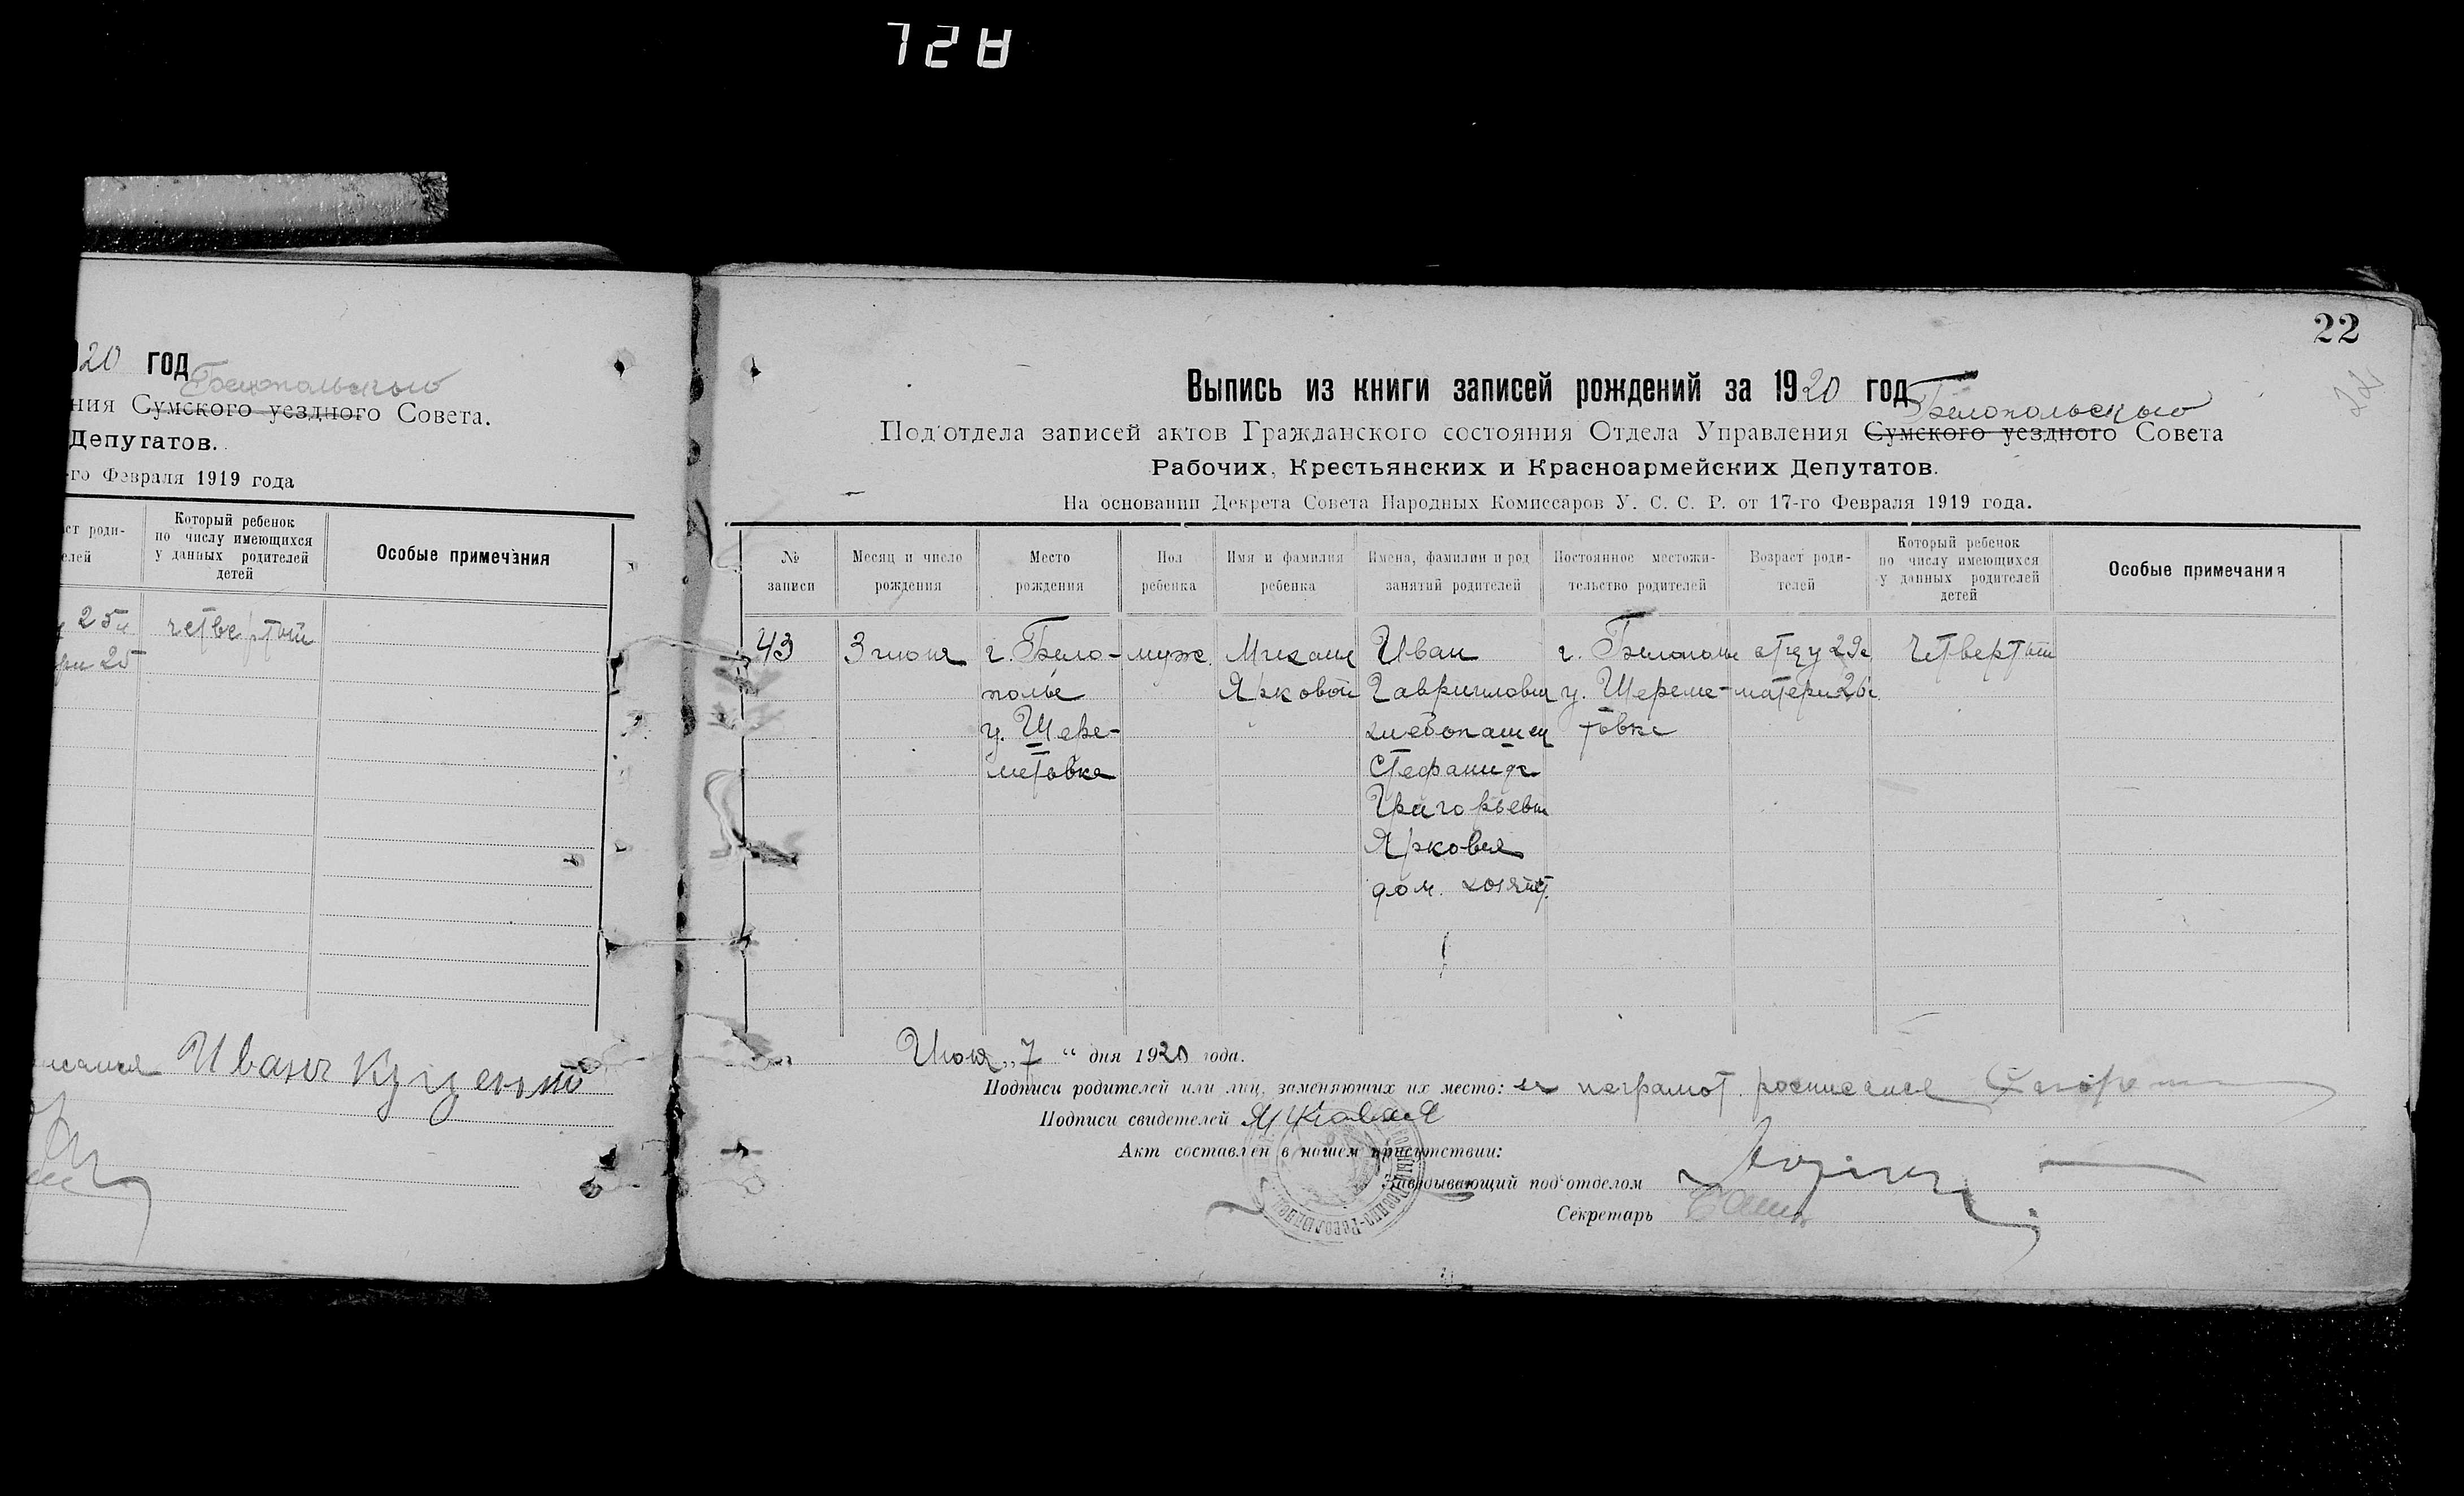 728
20 год
Белопольского
ния Сумского уездного Совета.
Депутатов.
-го Февраля 1919 года
ст роди-
елей
Который ребенок
по числу имеющихся
у данных родителей
детей
Особые примечания
25
четвертый
ри 25
Иван
22
22
Выпись из книги записей рождений за 1920 год
Белопольского
Под'отдела записей актов Гражданского состояния Отдела Управления Сумского уездного Совета
Рабочих, Крестьянских и Красноармейских Депутатов.
На основании Декрета Совета Народных Комиссаров У. С. С. Р. от 17-го Февраля 1919 года.
№
записи
Месяц и число
рождения
Место
рождения
Пол
ребенка
Имя и фамилия
ребенка
Имена, фамилии и род
занятий родителей
Постоянное местожи-
тельство родителей
Возраст роди-
телей
Который ребенок
по числу имеющихся
у данных родителей
детей
Особые примечания
43
3 июня
г. Бело-
полье
у. Шере-
метовка
муж.
Михаил
Ярковой
Иван
Гаврилович
хлебопашец
Стефанида
Григорьевна
Ярковая
дом. хозяйст.
г. Белополье
у. Шереме-
товка
отцу 29
матери 26
Четвертый
Июня „7 “ дня 1920 года.
Подписи родителей или лиц, заменяющих их место: неграмот. росписался
Подписи свидетелей
Акт составлен в нашем присутствии:
Заведывающий под'отделом
Секретарь